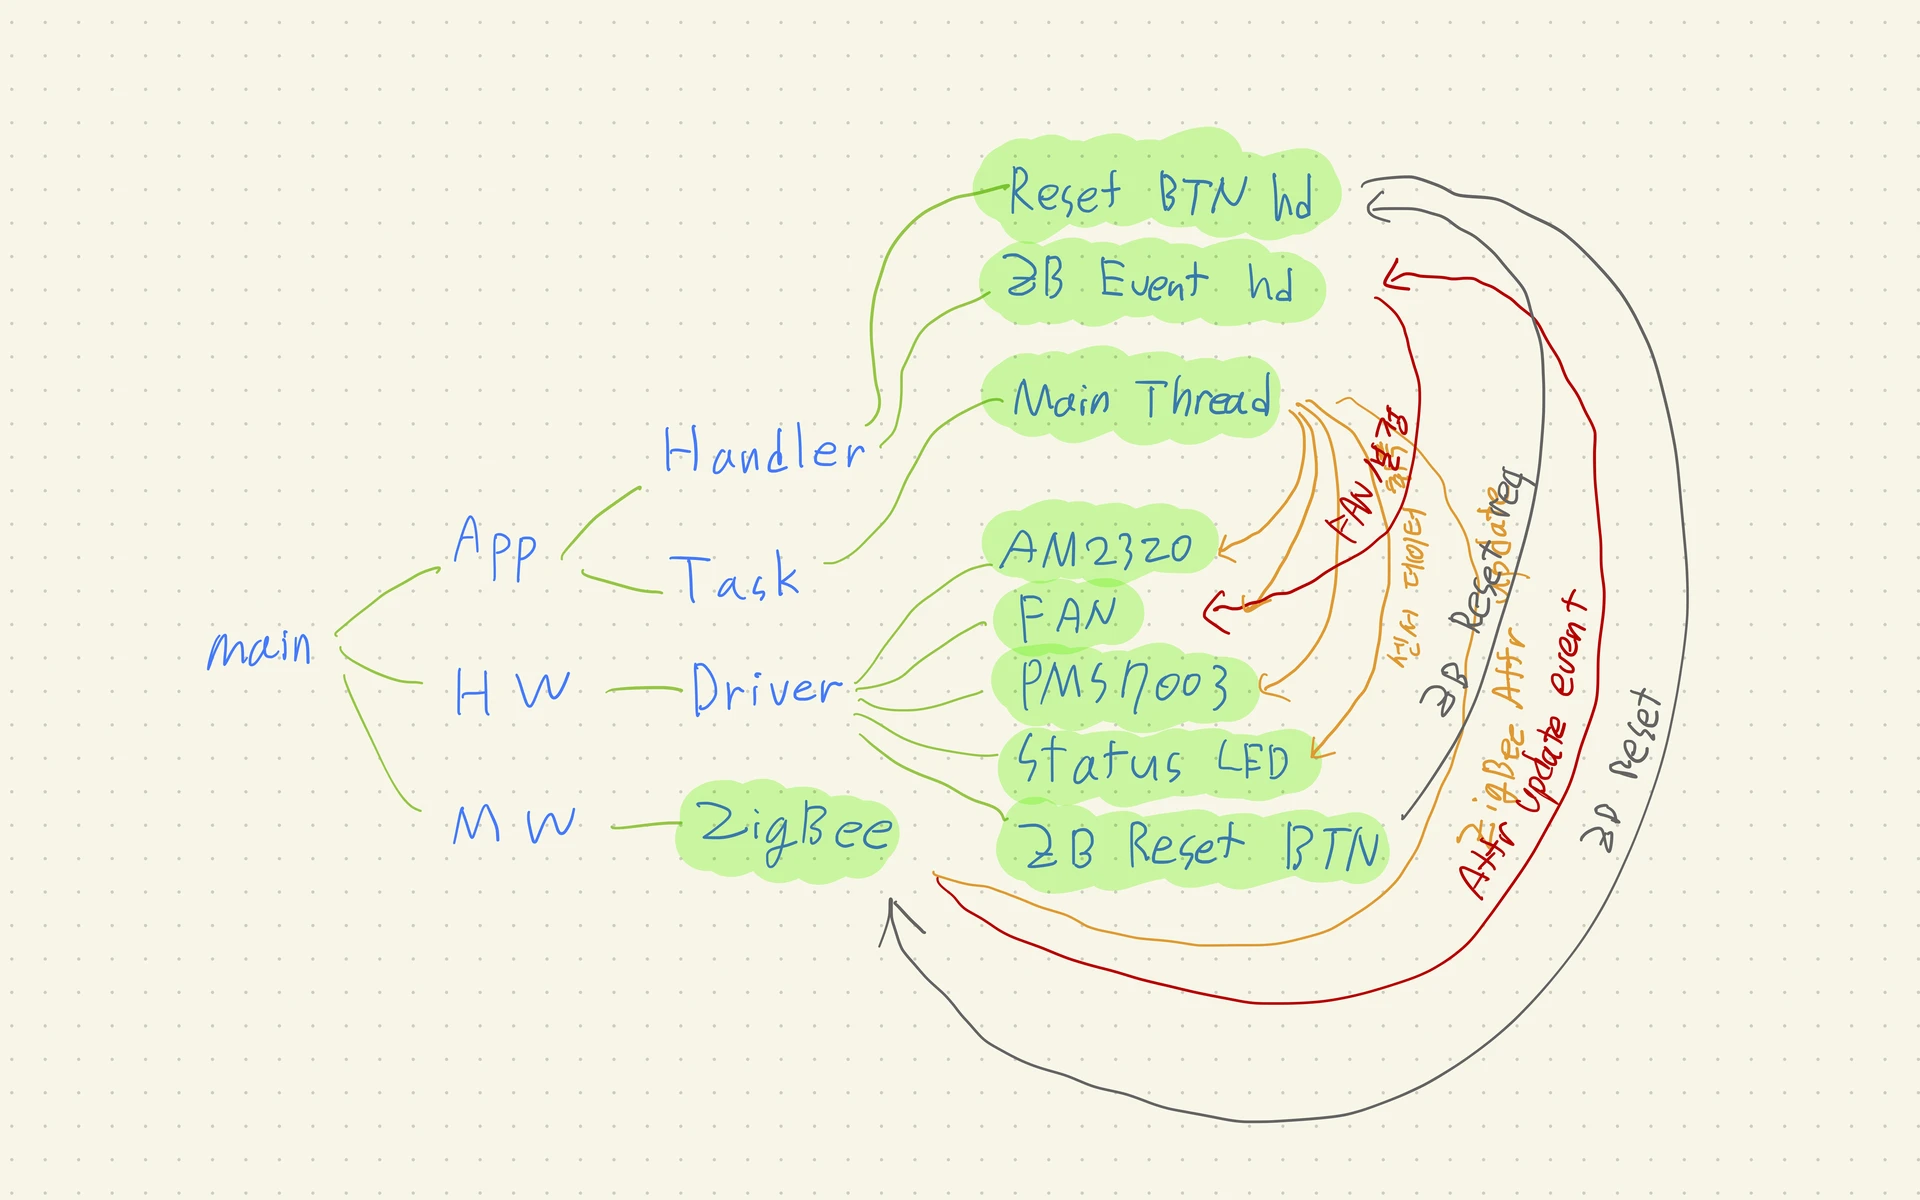 main
App
HW
MW
Handler
Task
Driver
ZigBee
Reset BTN hd
ZB Event hd
Main Thread
AM2320
FAN
PMS7003
Status LED
ZB Reset BTN
FAN
센서 데이터
ZB Reset req
ZigBee Attr update
Attr update event
ZB reset